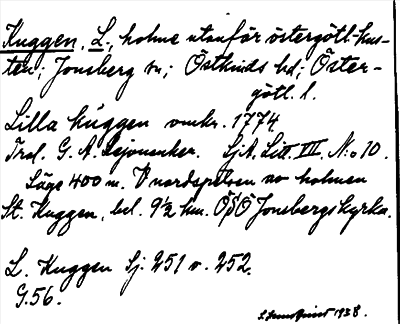 Kuggen, L., holme utanför östergötl. kus-
ten; Jonsberg sn; Östkinds hd; Öster-
götl. l.
Lilla kúggen omkr. 1774
Trol. G. A. Lejonancker. SjA. Litt. III, N:o 10.
Läge 400 m. V nordspetsen av holmen
St. Kuggen, bel. 9½ km. ÖSÖ Jonsbergs kyrka.
L. Kuggen Sj. 251 o. 252.
G. 56.
1938.